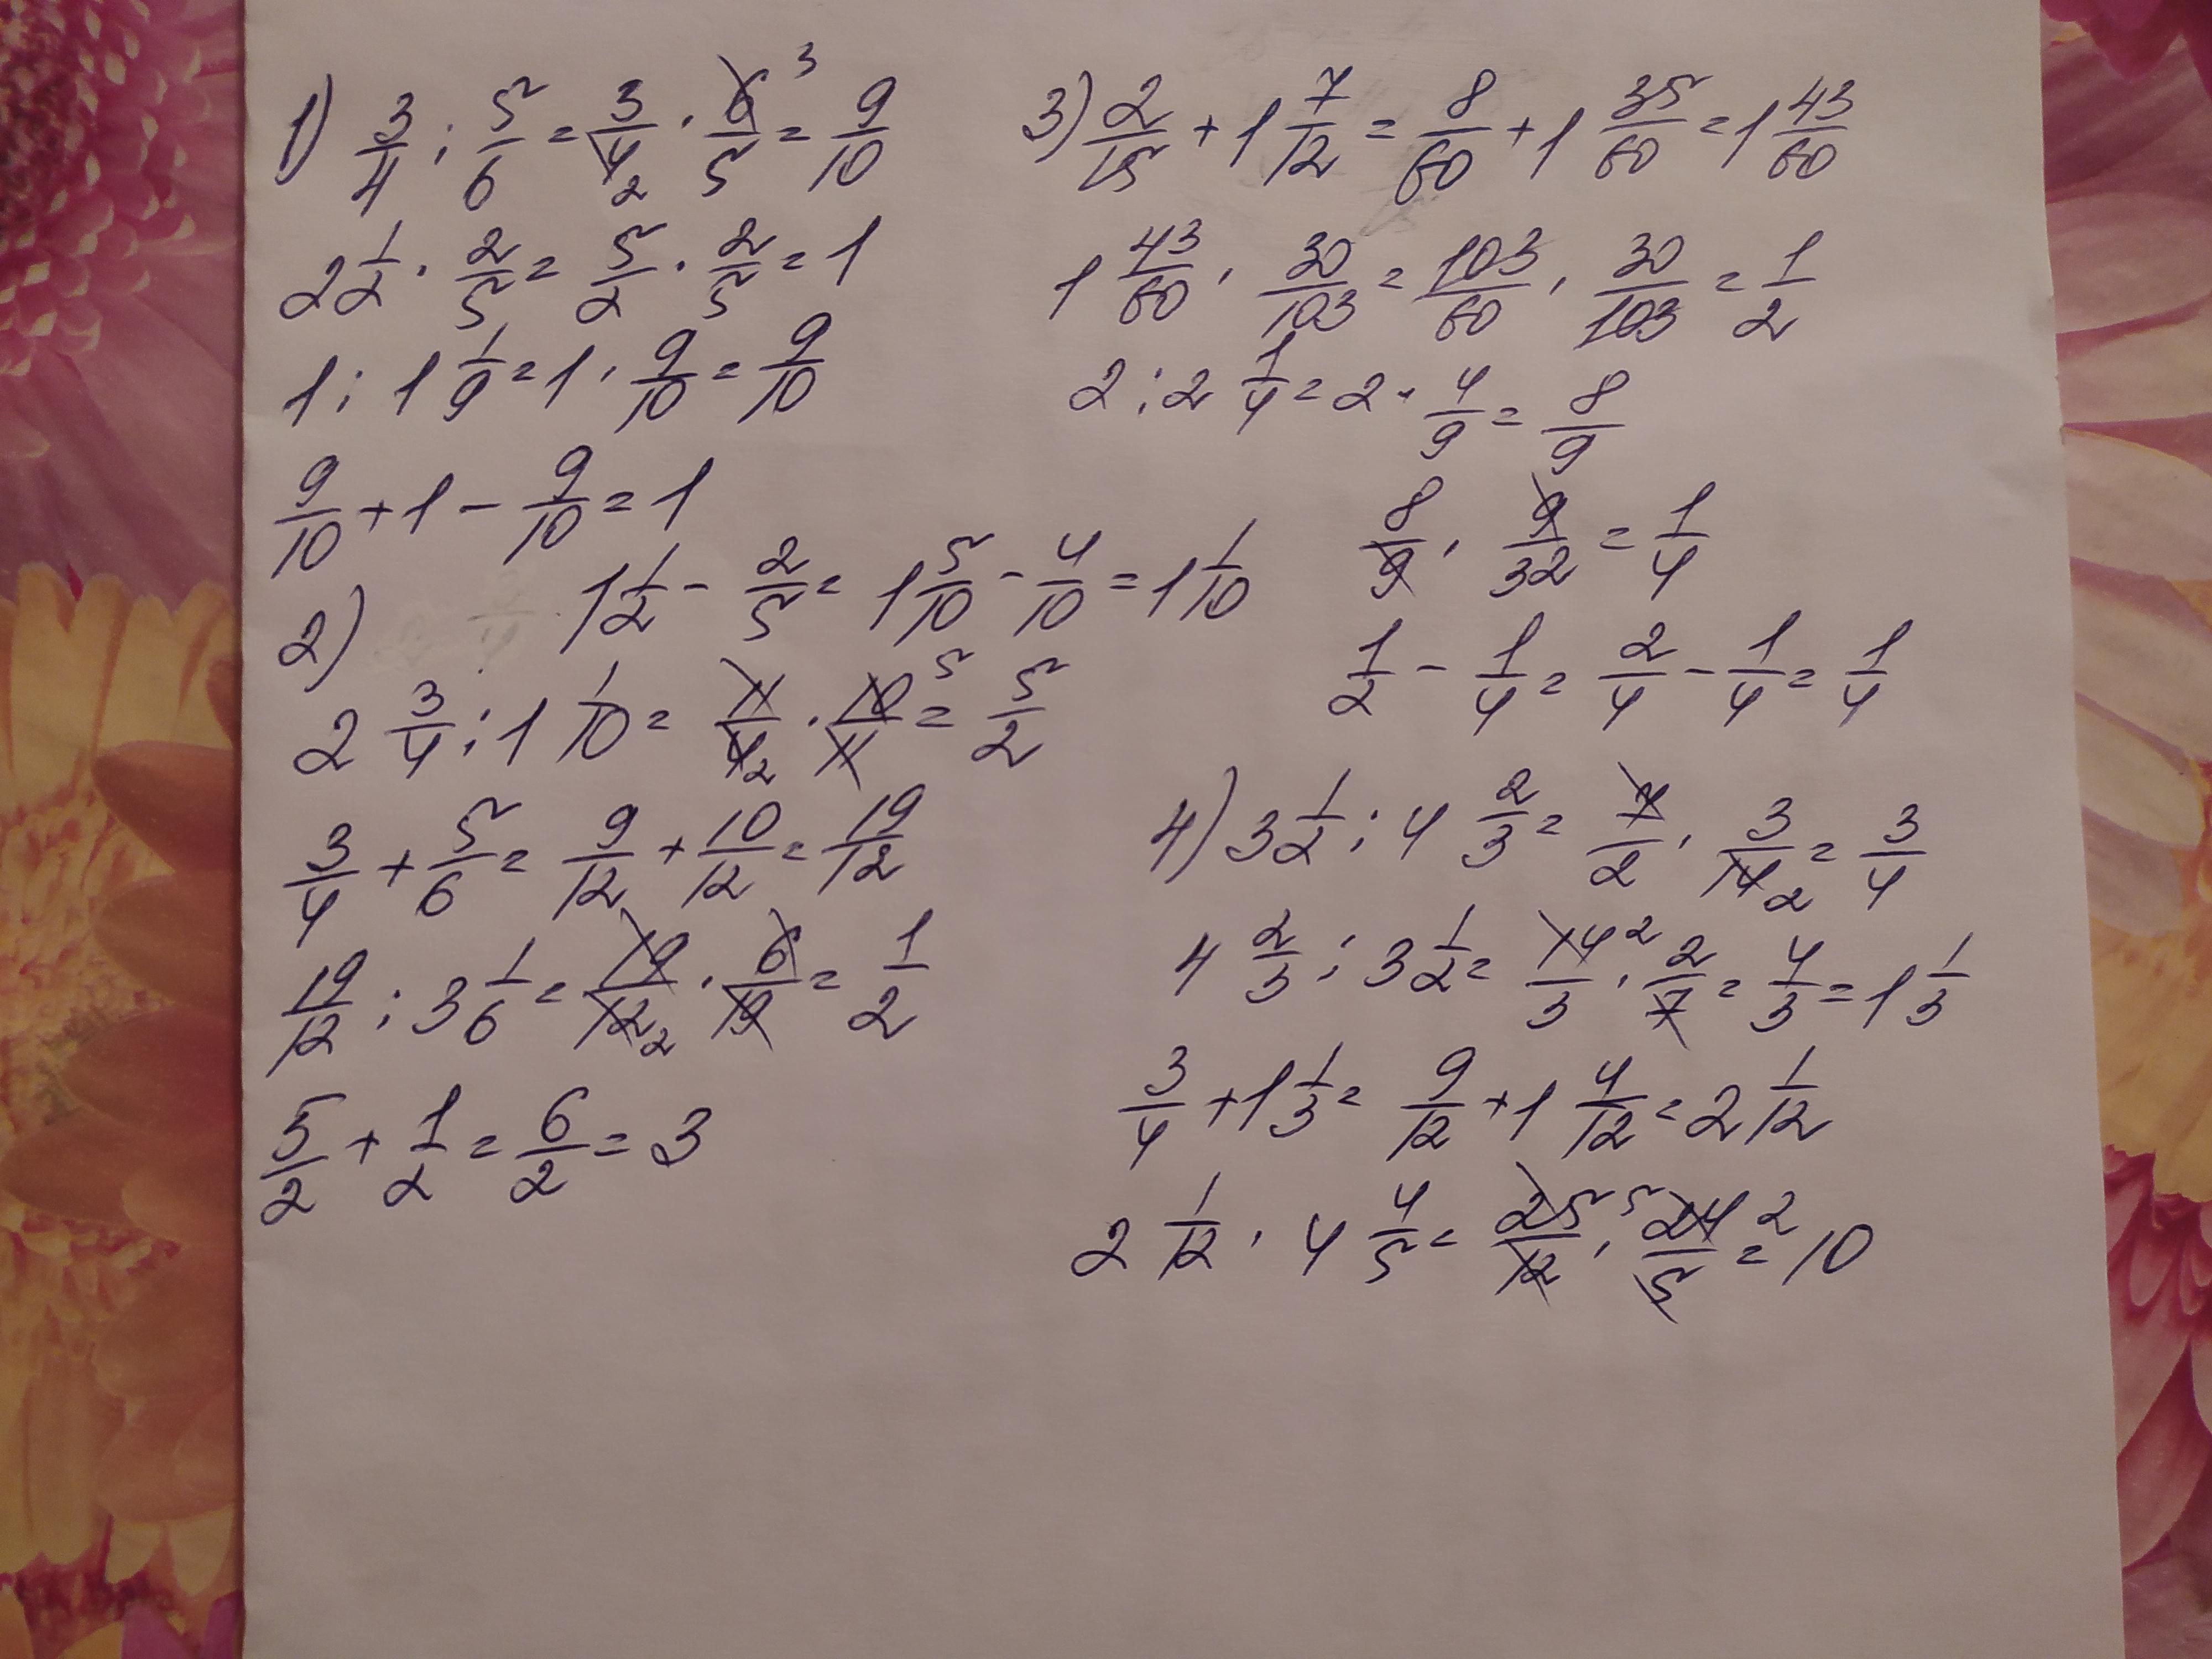 1) 3/4 : 5/6 = 3/4 2 · 6/5 3 = 9/10
2 1/2 · 2/5 = 5/2 · 2/5 = 1
1 : 1 1/9 = 1 · 9/10 = 9/10
9/10 + 1 - 9/10 = 1
2) 1 1/2 - 2/5 = 1 5/10 - 4/10 = 1 1/10
2 3/4 : 1 1/10 = 11/4 2 · 10/11 5 = 5/2
3/4 + 5/6 = 9/12 + 10/12 = 19/12
19/12 : 3 1/6 = 19/12 2 · 6/19 = 1/2
5/2 + 1/2 = 6/2 = 3
3) 2/15 + 1 7/12 = 8/60 + 1 35/60 = 1 43/60
1 43/60 · 30/103 = 103/60 · 30/103 = 1/2
2 : 2 1/4 = 2 · 4/9 = 8/9
8/9 · 9/32 = 1/4
1/2 - 1/4 = 2/4 - 1/4 = 1/4
4) 3 1/2 : 4 2/3 = 7/2 · 3/14 2 = 3/4
4 2/3 : 3 1/2 = 14/3 2 · 2/7 = 4/3 = 1 1/3
3/4 + 1 1/3 = 9/12 + 1 4/12 = 2 1/12
2 1/12 · 4 4/5 = 25/12 5 · 24/5 2 = 10